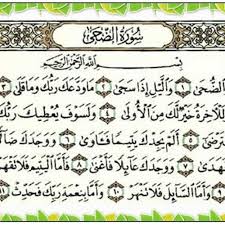 سُورَةُ الضُّحَى
بِسْمِ اللَّهِ الرَّحْمَٰنِ الرَّحِيمِ
الضُّحَى ١ وَالَّيْلِ إِذَا سَجَى ٢ مَا وَدَّعَكَ رَبُّكَ وَمَا قَلَى ٣
لَلْآخِرَةُ خَيْرٌ لَّكَ مِنَ الْأُولَى ٤ وَلَسَوْفَ يُعْطِيكَ رَبُّكَ
تَرْضَى ٥ أَلَمْ يَجِدْكَ يَتِيمًا فَآوَى ٦ وَوَجَدَكَ
هَدَى ٧ وَوَجَدَكَ عَائِلًا فَأَغْنَى ٨ فَأَمَّا الْيَتِيمَ فَلَا تَقْهَرْ
٩ وَأَمَّا السَّائِلَ فَلَا تَنْهَرْ ١٠ وَأَمَّا بِنِعْمَةِ رَبِّكَ فَحَدِّثْ ١١